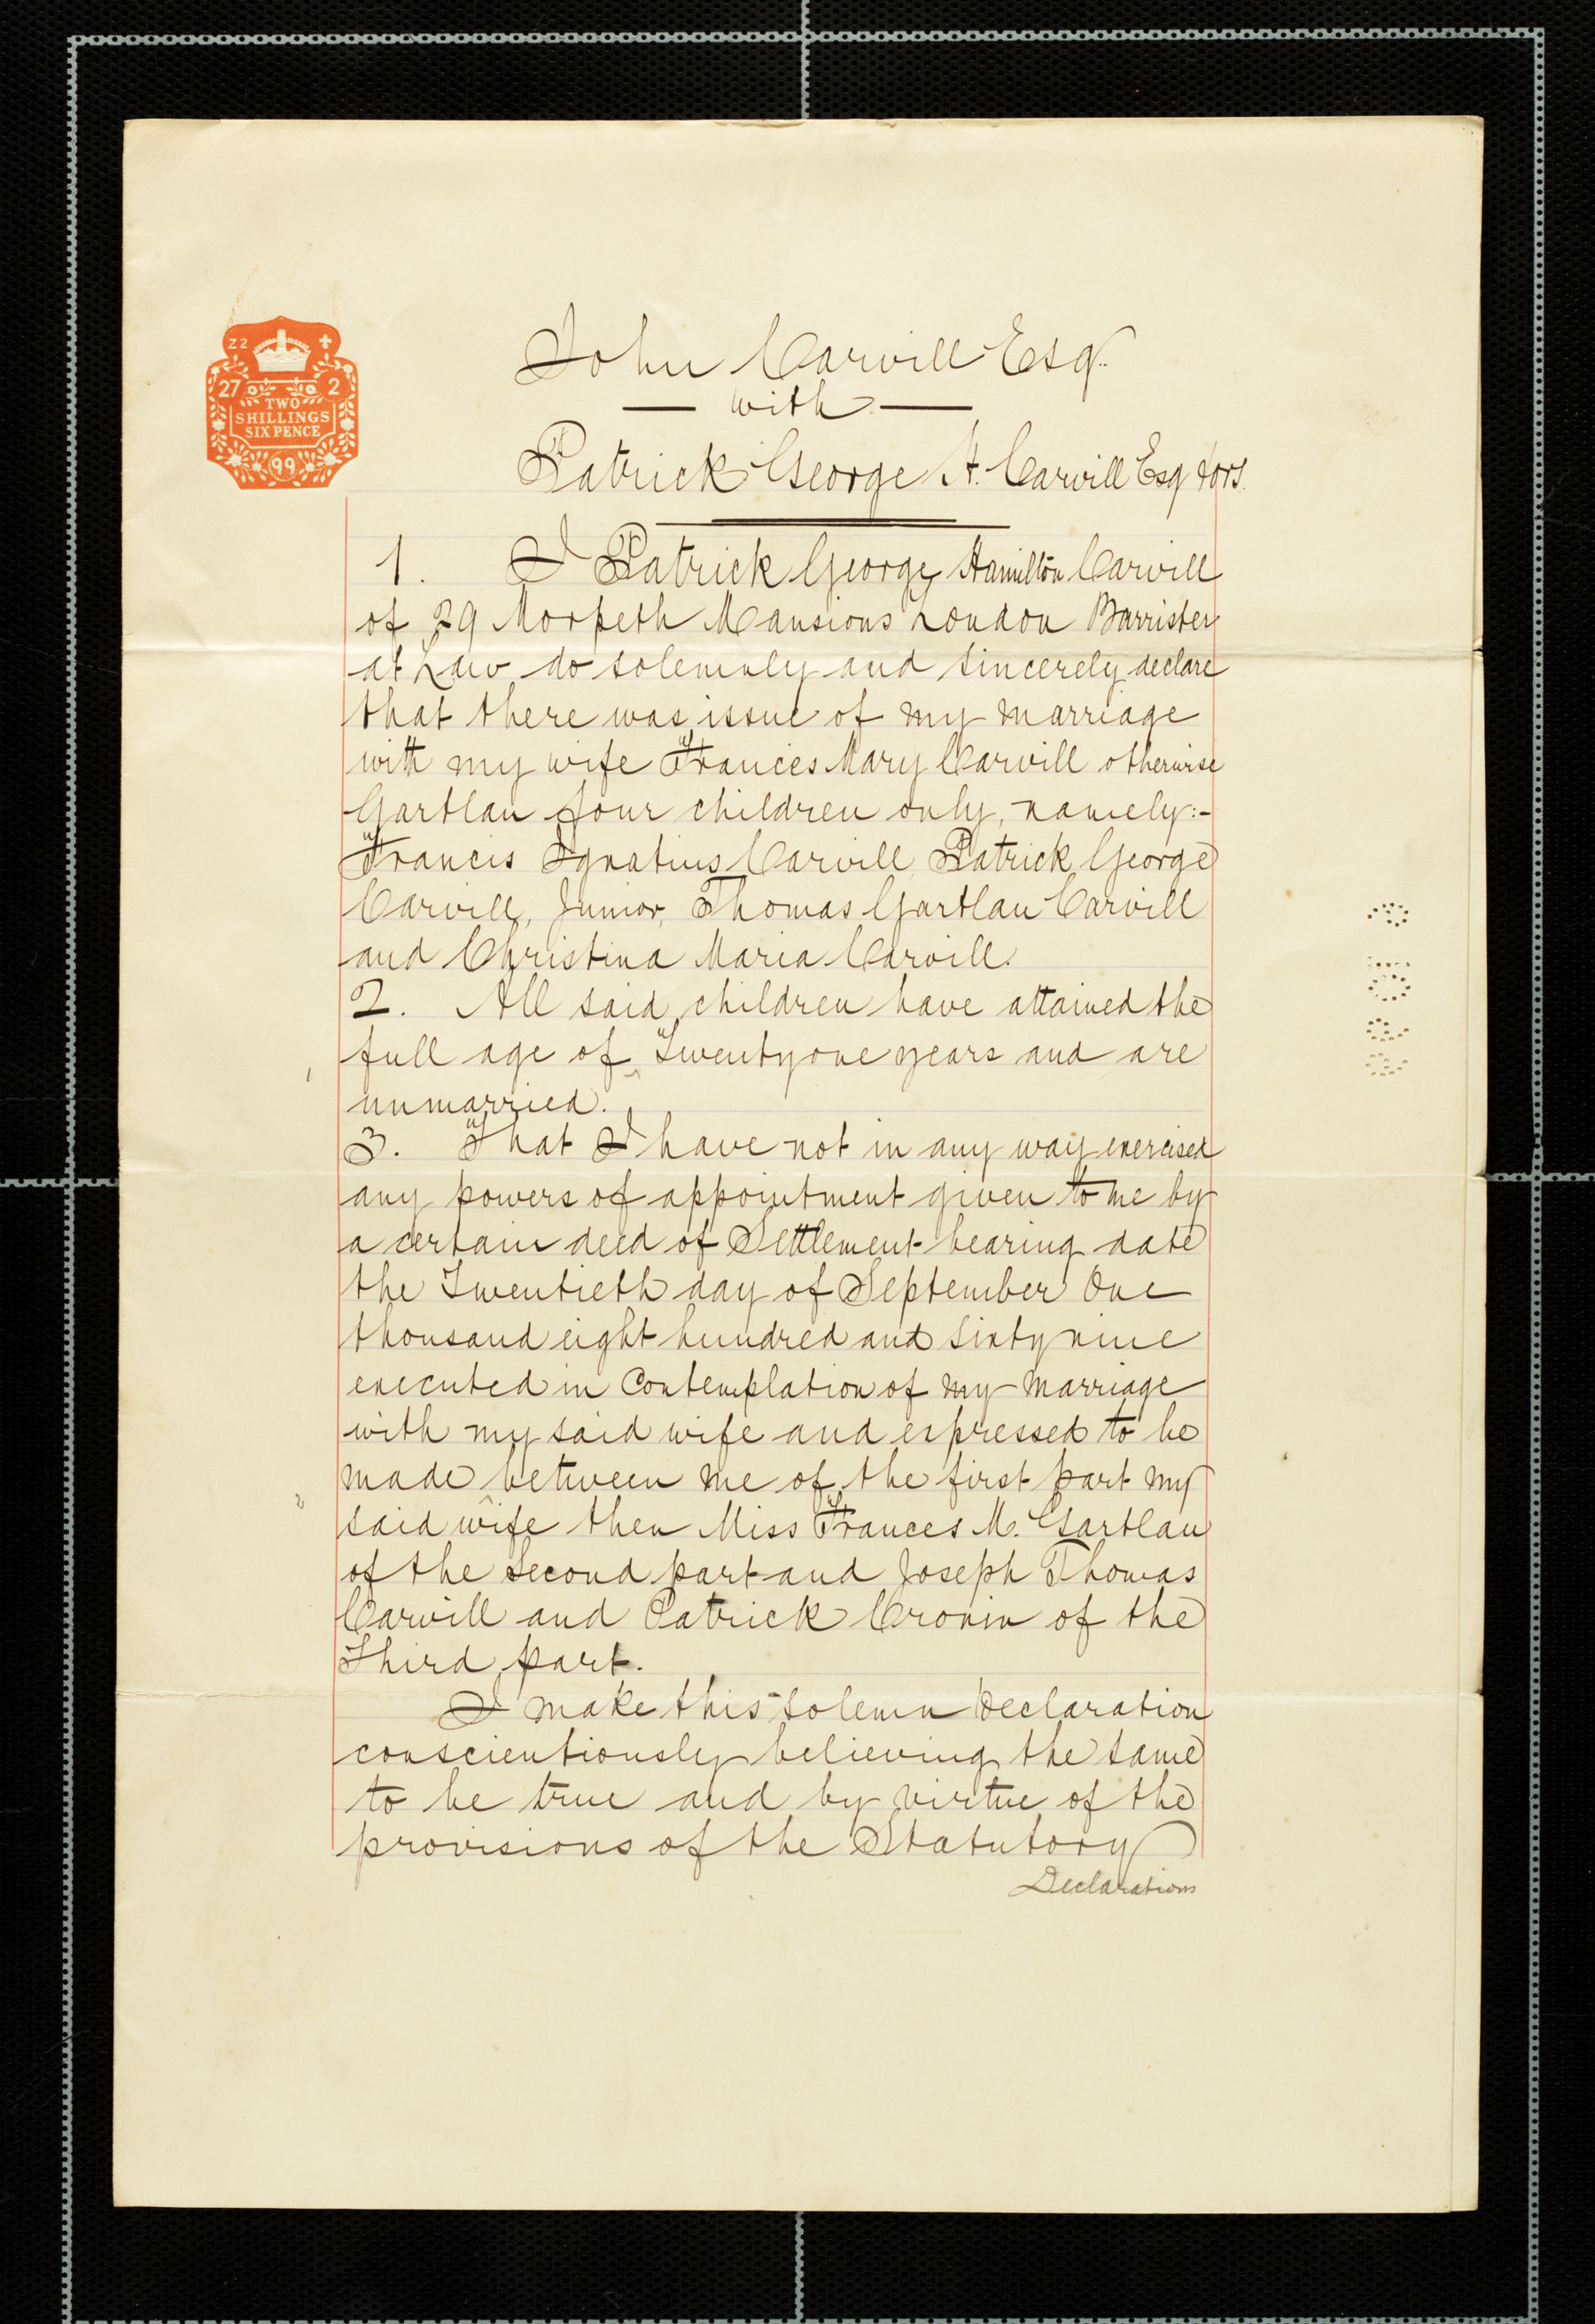 Z2
27 2
TWO
SHILLINGS
SIX PENCE
99
John Carvill Esq.
with
Patrick George H. Carvill Esq & ors.
1. I Patrick George Hamilton Carvill
of 29 Morpeth Mansions London Barrister
at Law do solemnly and sincerely declare
that there was issue of my marriage
with my wife Frances Mary Carvill otherwise
Gartlan four children only, namely:-
Francis Ignatius Carvill, Patrick George
Carvill, Junior, Thomas Gartlan Carvill
and Christina Maria Carvill.
2. All said children have attained the
full age of Twentyone years and are
unmarried.
3. That I have not in any way exercised
any powers of appointment given to me by
a certain deed of Settlement bearing date
the Twentieth day of September One
thousand eight hundred and sixty nine
executed in Contemplation of my marriage
with my said wife and expressed to be
made between me of the first part my
said wife then Miss Frances M. Gartlan
of the second part and Joseph Thomas
Carvill and Patrick Cronin of the
Third part.
I make this solemn declaration
conscientiously believing the same
to be true and by virtue of the
provisions of the Statutory
Declarations